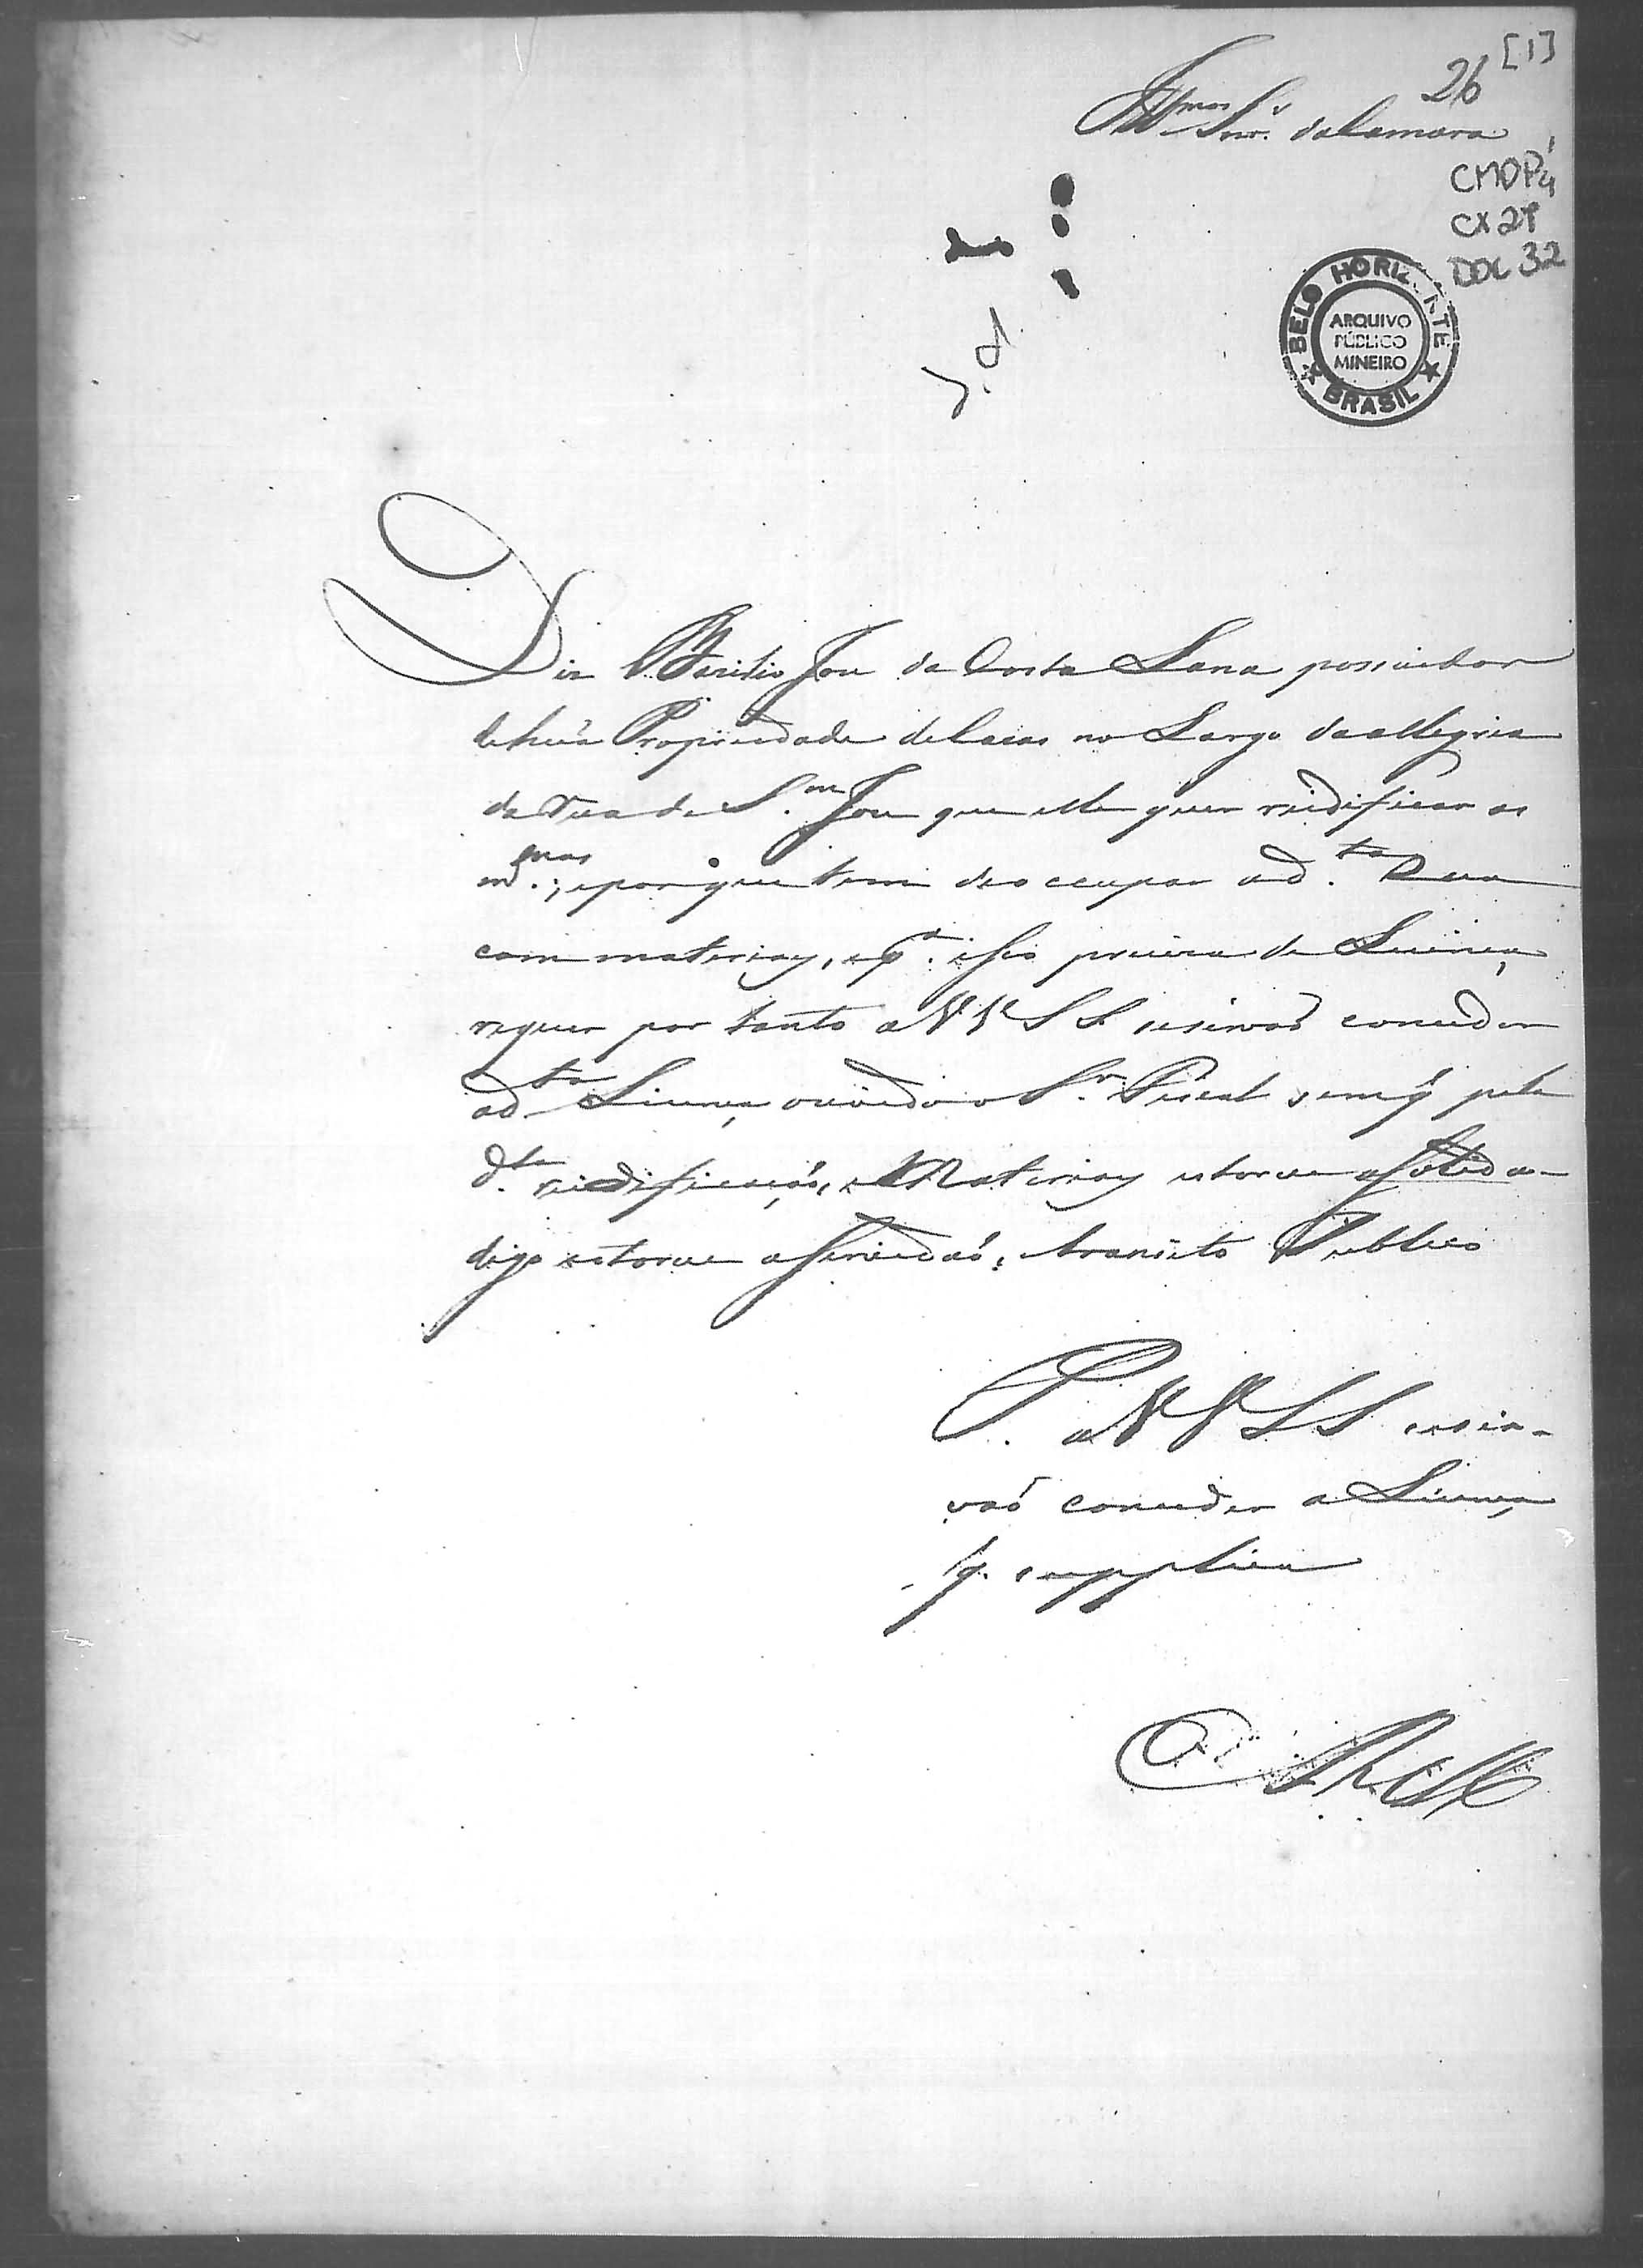 [1]
26
Ill.mos Snr.s da Camara
CMOP
CX 21
DOC 32
BELO HORIZONTE
ARQUIVO
PÚBLICO
MINEIRO
BRASIL
Diz Jose da Costa Lana possuidor
de huã Propriedade de Cazas no Largo da Allegria
da Rua de S.m Jose que elle quer reidificar as
m.mas, e por que tem de occupar a d.ta Rua
com materiaes, e p.a isso preciza de Licença,
requer por tanto a VV SS se sirvaõ conceder
a d.ta Licença, ouvido o S.r Fiscal sem q' pela
d.ta reidificaçaõ, e Materiaes estorve a
digo estorve a servidaõ, e tranzito Publico
P. a VV SS se sir-
vaõ conceder a Licença
q. supplica
E R M